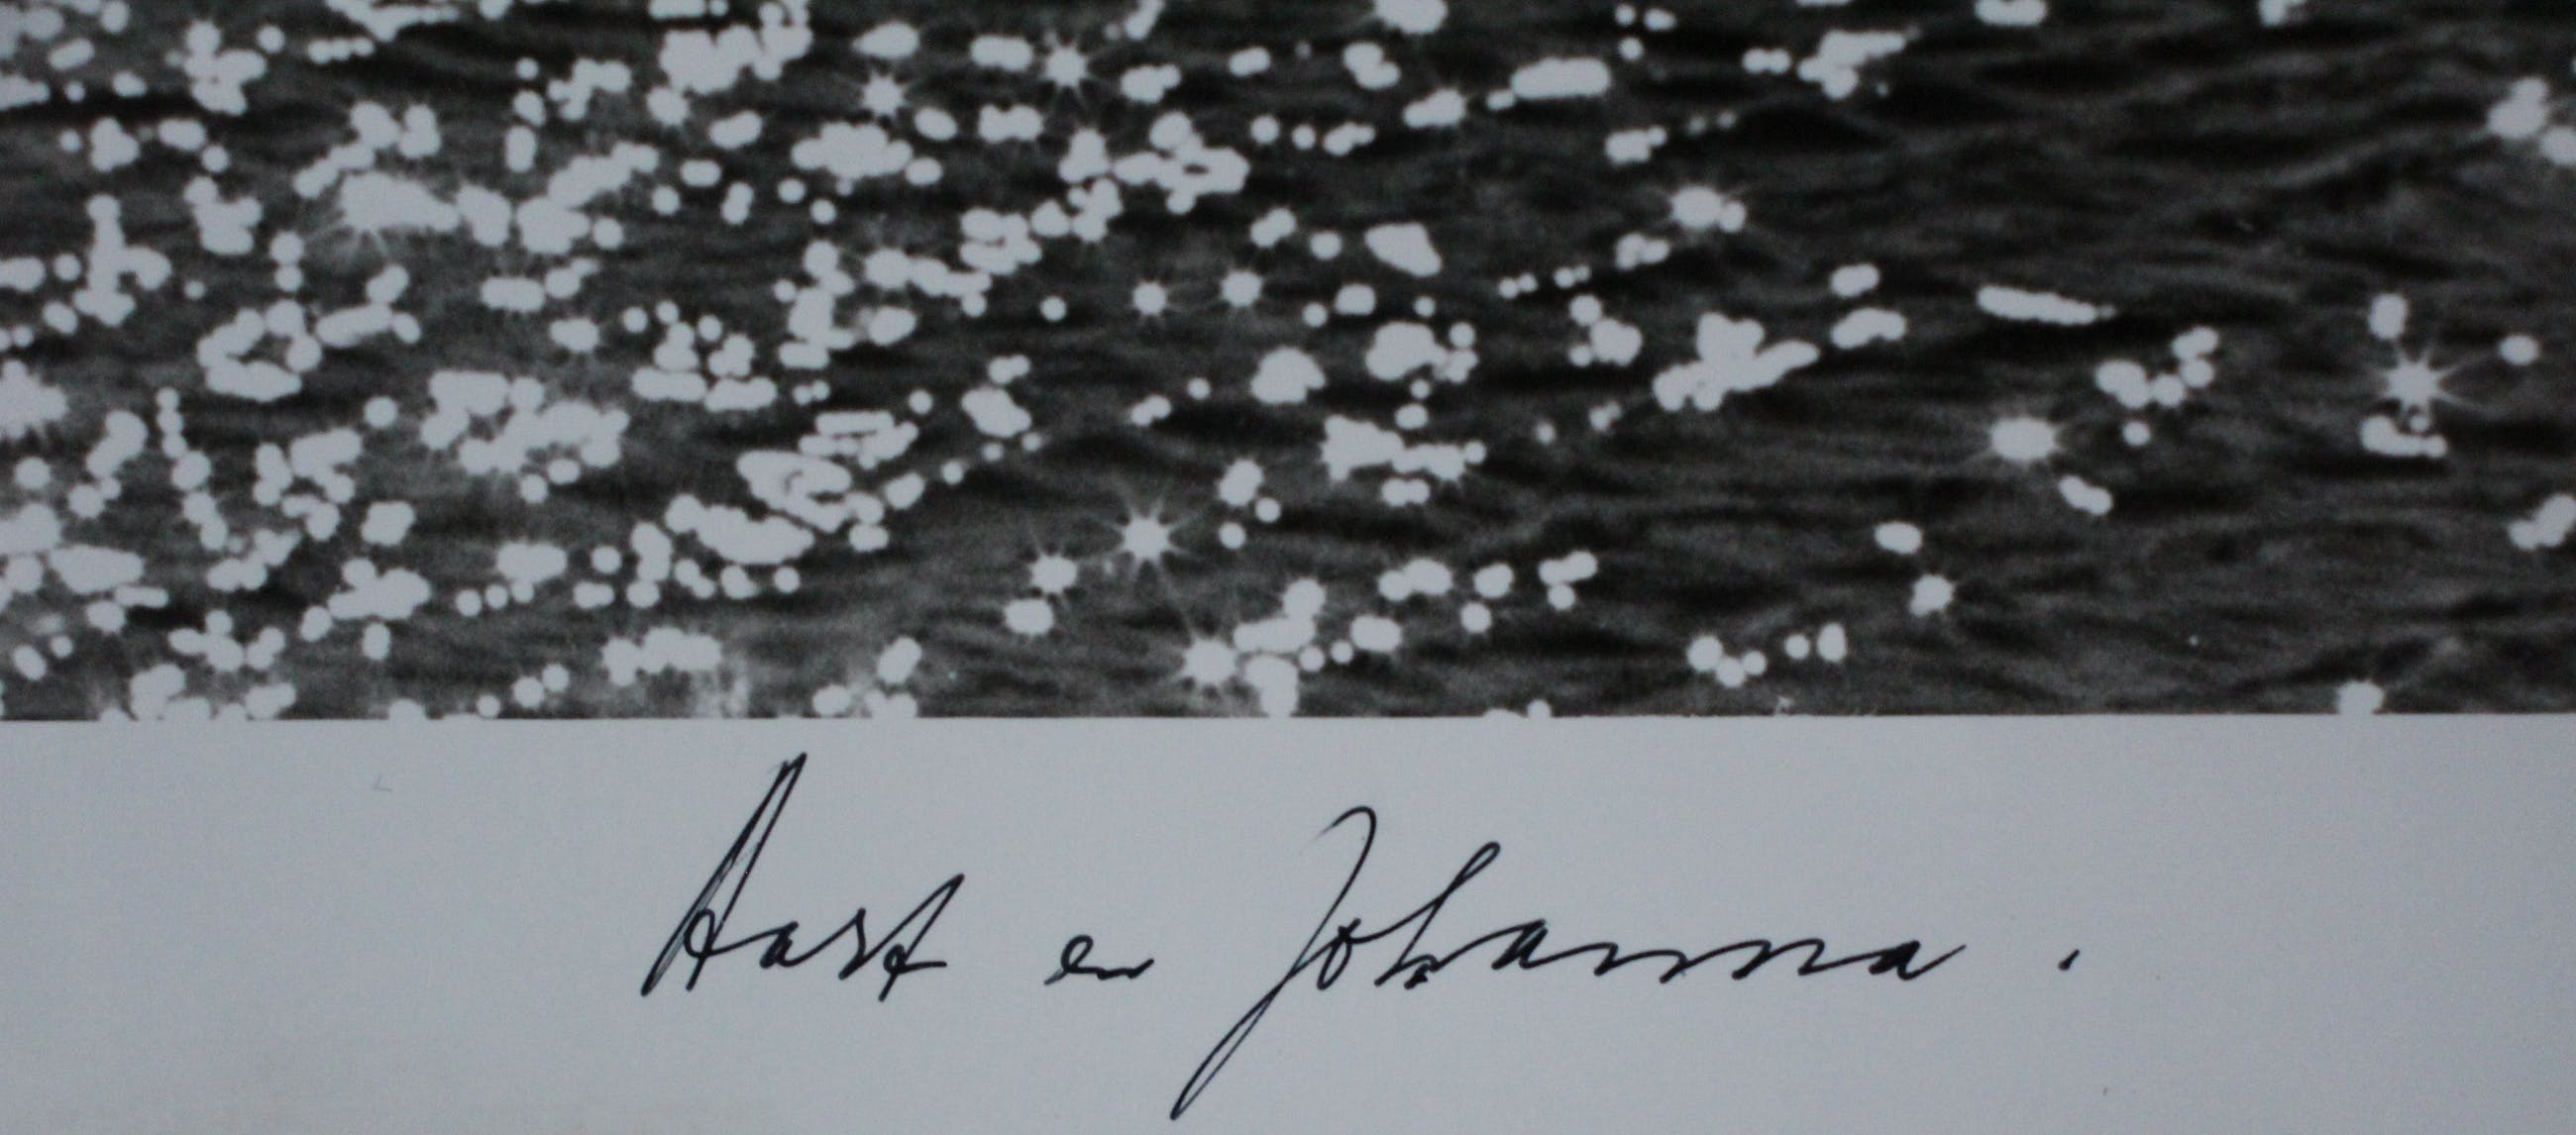 Aart en Johanna.